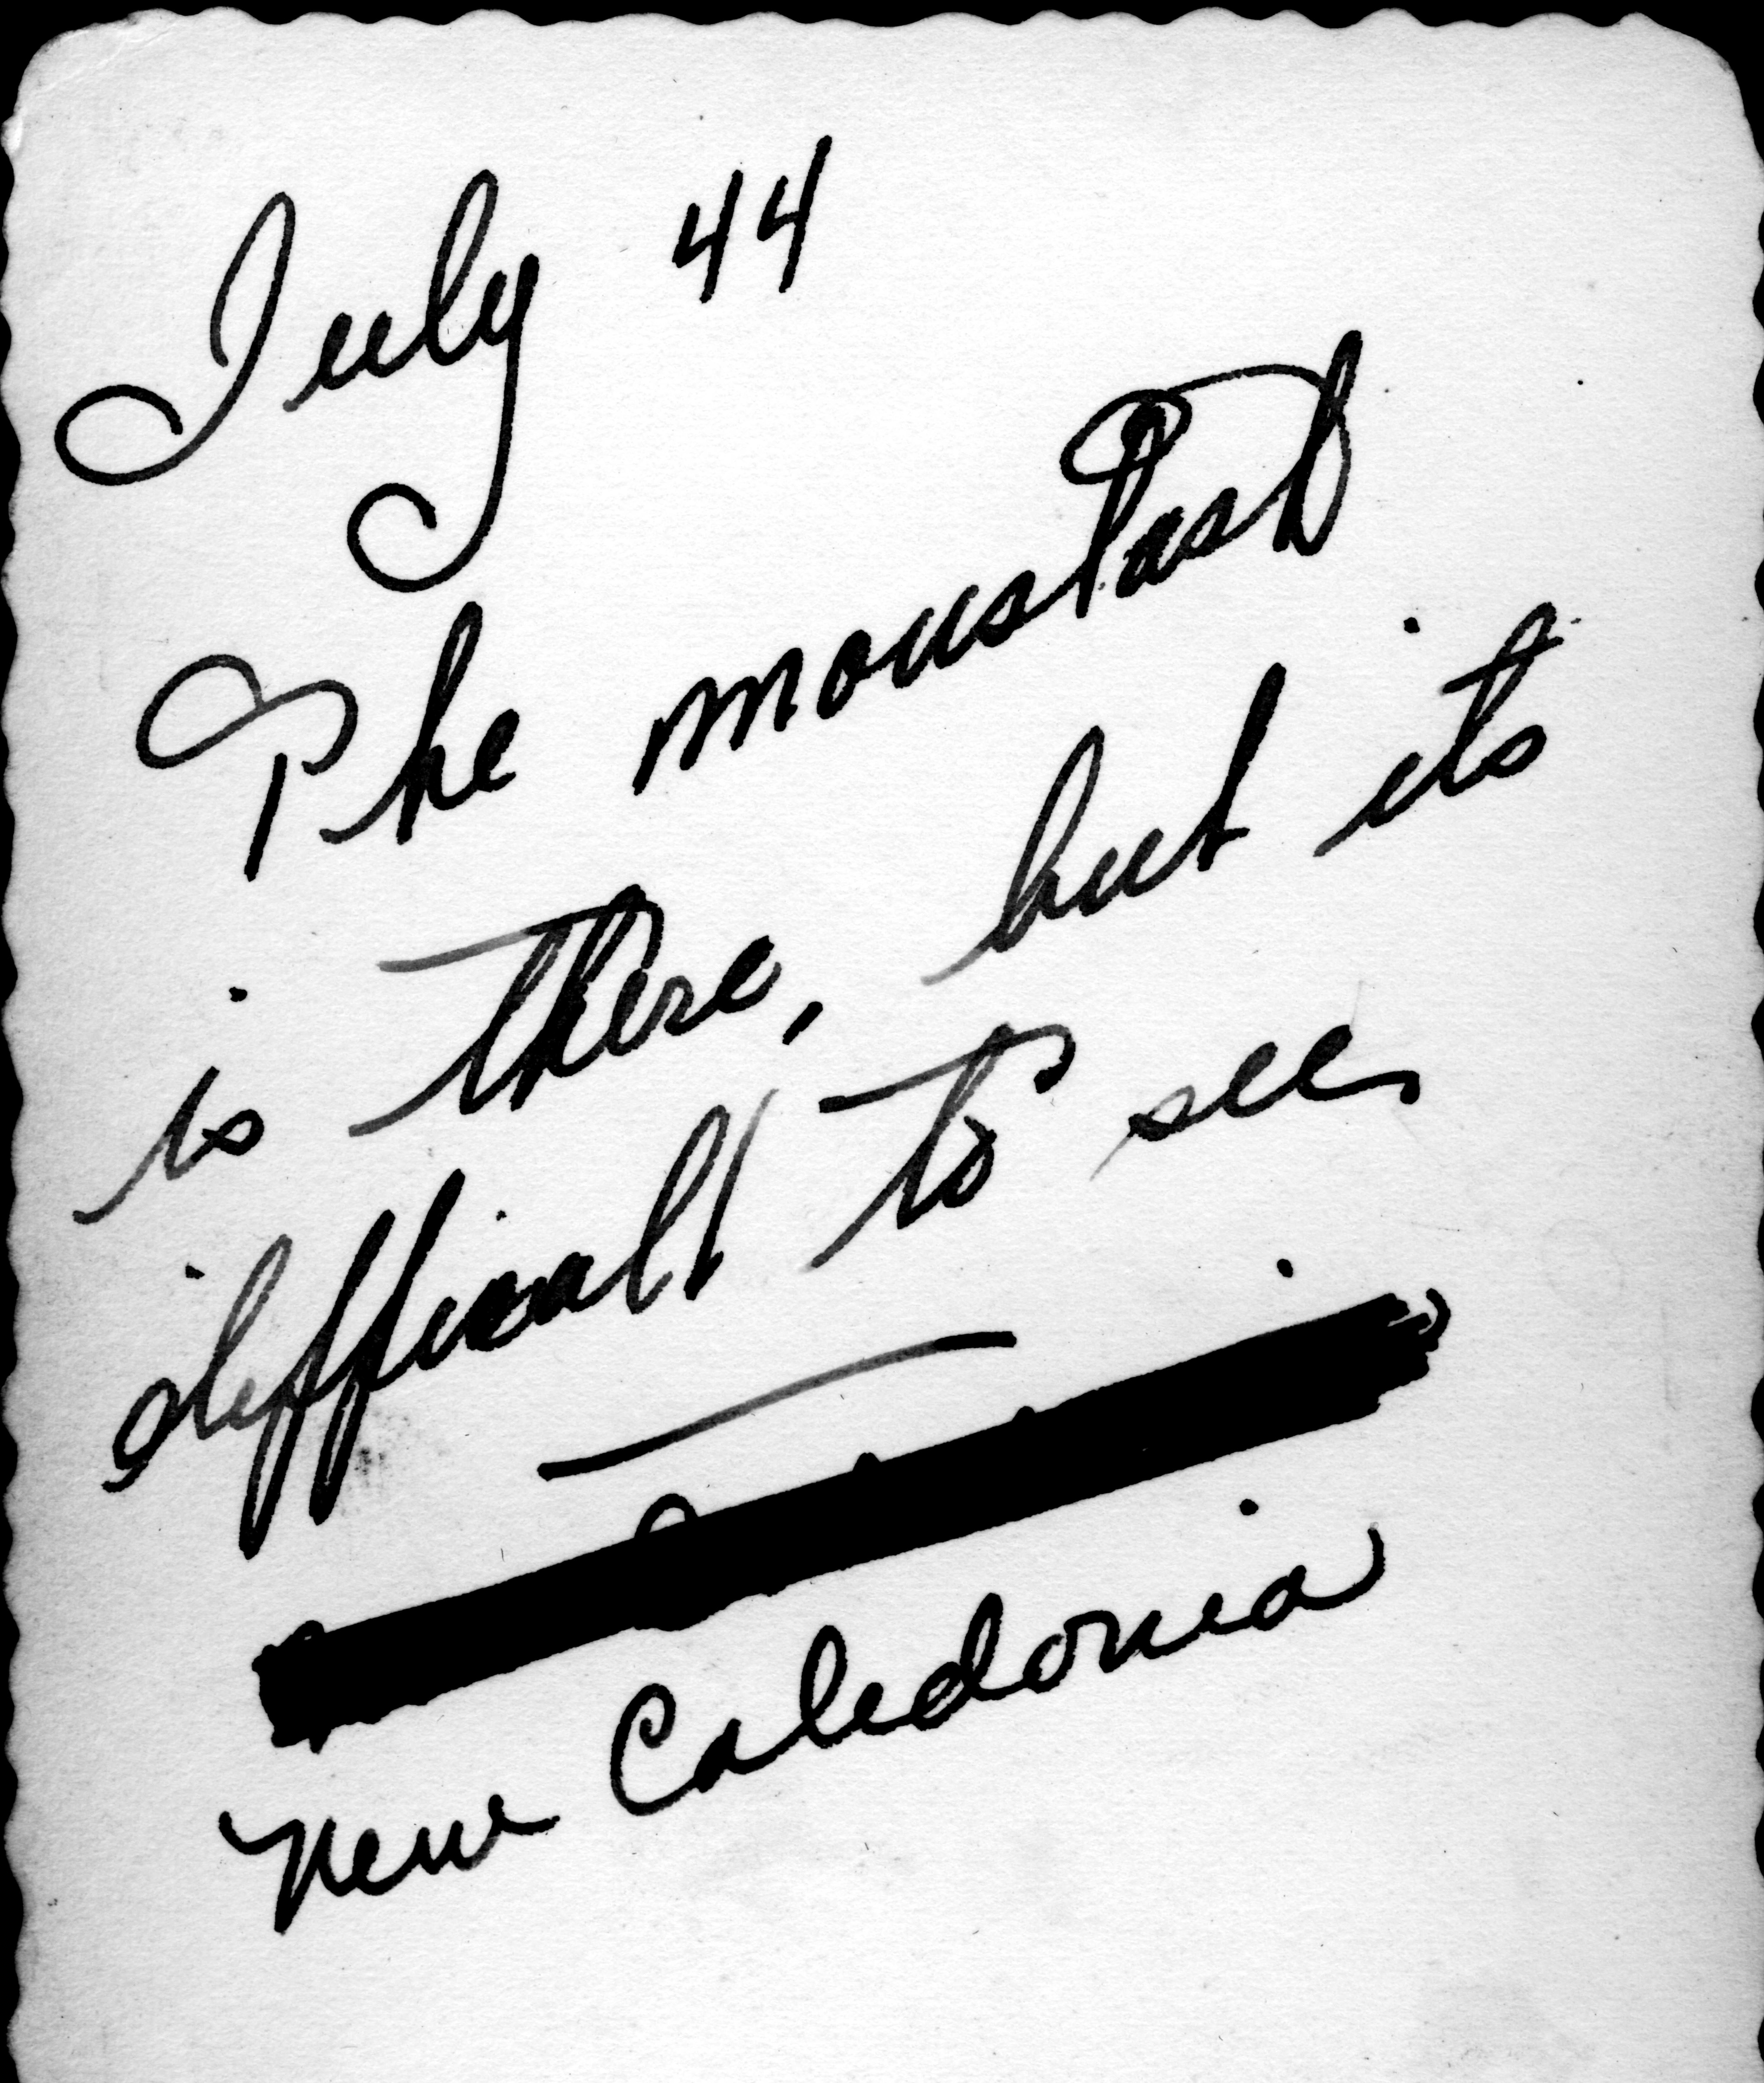 July 44
The moustash
is there, but its
difficult to see
New Caledonia